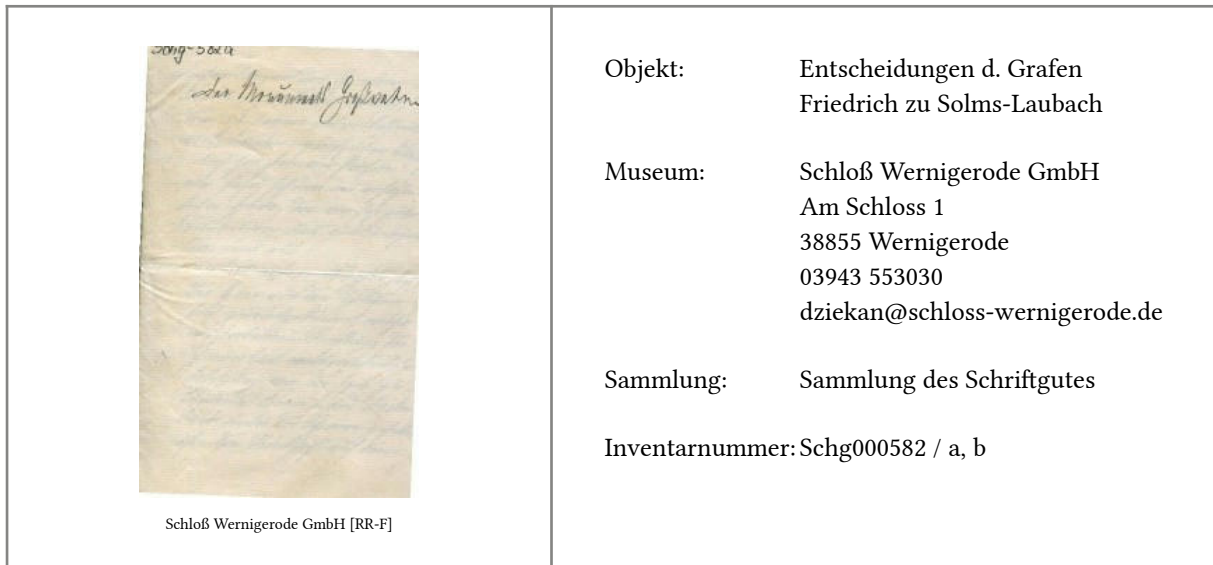 Schg-582a
Schloß Wernigerode GmbH [RR-F]
Objekt: Entscheidungen d. Grafen
Friedrich zu Solms-Laubach
Museum: Schloß Wernigerode GmbH
Am Schloss 1
38855 Wernigerode
03943 553030
dziekan@schloss-wernigerode.de
Sammlung: Sammlung des Schriftgutes
Inventarnummer: Schg000582 / a, b